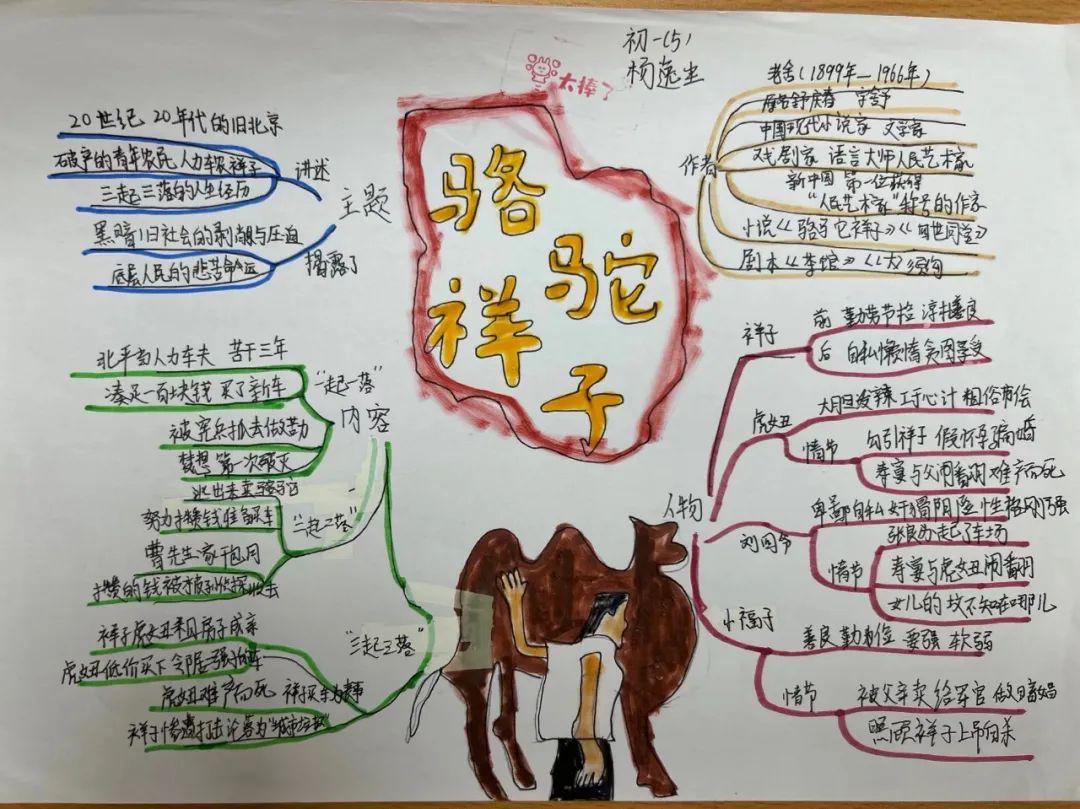 初一(5)
太棒了
骆
驼
祥
子
主题
讲述
20世纪 20年代的旧北京
破产的青年农民 人力车夫祥子
三起三落的人生经历
揭露了
黑暗旧社会的剥削与压迫
底层人民的悲苦命运
内容
"一起一落"
北平当人力车夫 苦干三年
凑足一百块钱 买了新车
被宪兵抓去做苦力
梦想 第一次破灭
"二起二落"
逃出来卖骆驼
努力攒钱准备买车
曹先生家包月
攒的钱被孙侦探收去
"三起三落"
祥子虎妞租房子成亲
虎妞低价买下
虎妞难产而死 祥子卖车为
祥子惨遭打击沦为"城市垃圾"
作者
老舍(1899年—1966年)
原名舒庆春 字舍予
中国现代小说家 文学家
戏剧家 语言大师 人民艺术家
新中国 第一位获得
"人民艺术家"称号的作家
小说《骆驼祥子》《四世同堂》
剧本《茶馆》《龙须沟》
人物
祥子
前 勤劳节俭 淳朴善良
后 自私懒惰贪图享受
虎妞
大胆泼辣 工于心计 粗俗市侩
情节
勾引祥子 假怀孕骗婚
寿宴与父闹翻 难产而死
刘四爷
卑鄙自私 奸猾阴险 性格刚强
情节
起了车场
寿宴与虎妞闹翻
女儿的坟不知在哪儿
小福子
善良 勤俭 要强 软弱
情节
被父亲卖给军官 做暗娼
祥子 上吊自杀